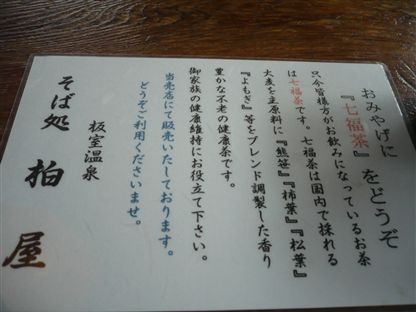 おみやげに
『七福茶』をどうぞ
只今皆様方がお飲みになっているお茶
は七福茶です。七福茶は国内で採れる
大麦を主原料に『熊笹』『柿葉』『松葉』
『よもぎ』等をブレンド調製した香り
豊かな不老の健康茶です。
御家族の健康維持にお役立て下さい。
当売店にて販売いたしております。
どうぞご利用くださいませ。
板室温泉
そば処 柏屋